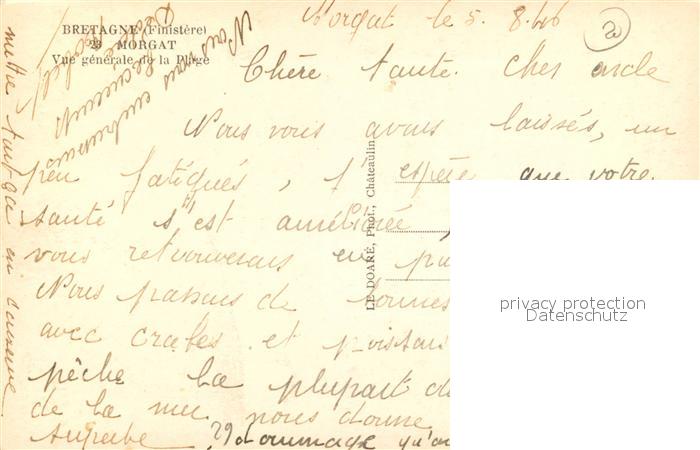 BRETAGNE (Finistère)
29 MORGAT
Vue générale de la Plage
Morgat le 5. 8.46
Chère tante. Cher oncle
Nous vous avons laissés, un
peu fatigués, j'espère que votre
santé s'est améliorée,
vous retrouverons en
Nous passons de bonnes
avec crabes et poissons
pêche La plupart de
de la mer nous donne
superbe dommage qu'on
LE DOARÉ, Phot., Châteaulin
Nous vous embrassons
mettre tout ça en conserve.
29
privacy protection
Datenschutz